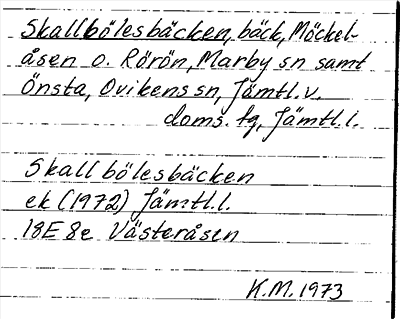 Skallbölesbäcken, bäck, Möckel-
åsen o. Rörön, Marby sn samt
Önsta, Ovikens sn, Jämtl. v.
doms. fg, Jämtl. l.
Skallbölesbäcken
ek (1972) Jämtl. l.
18E 8e Västeråsen
K.M. 1973